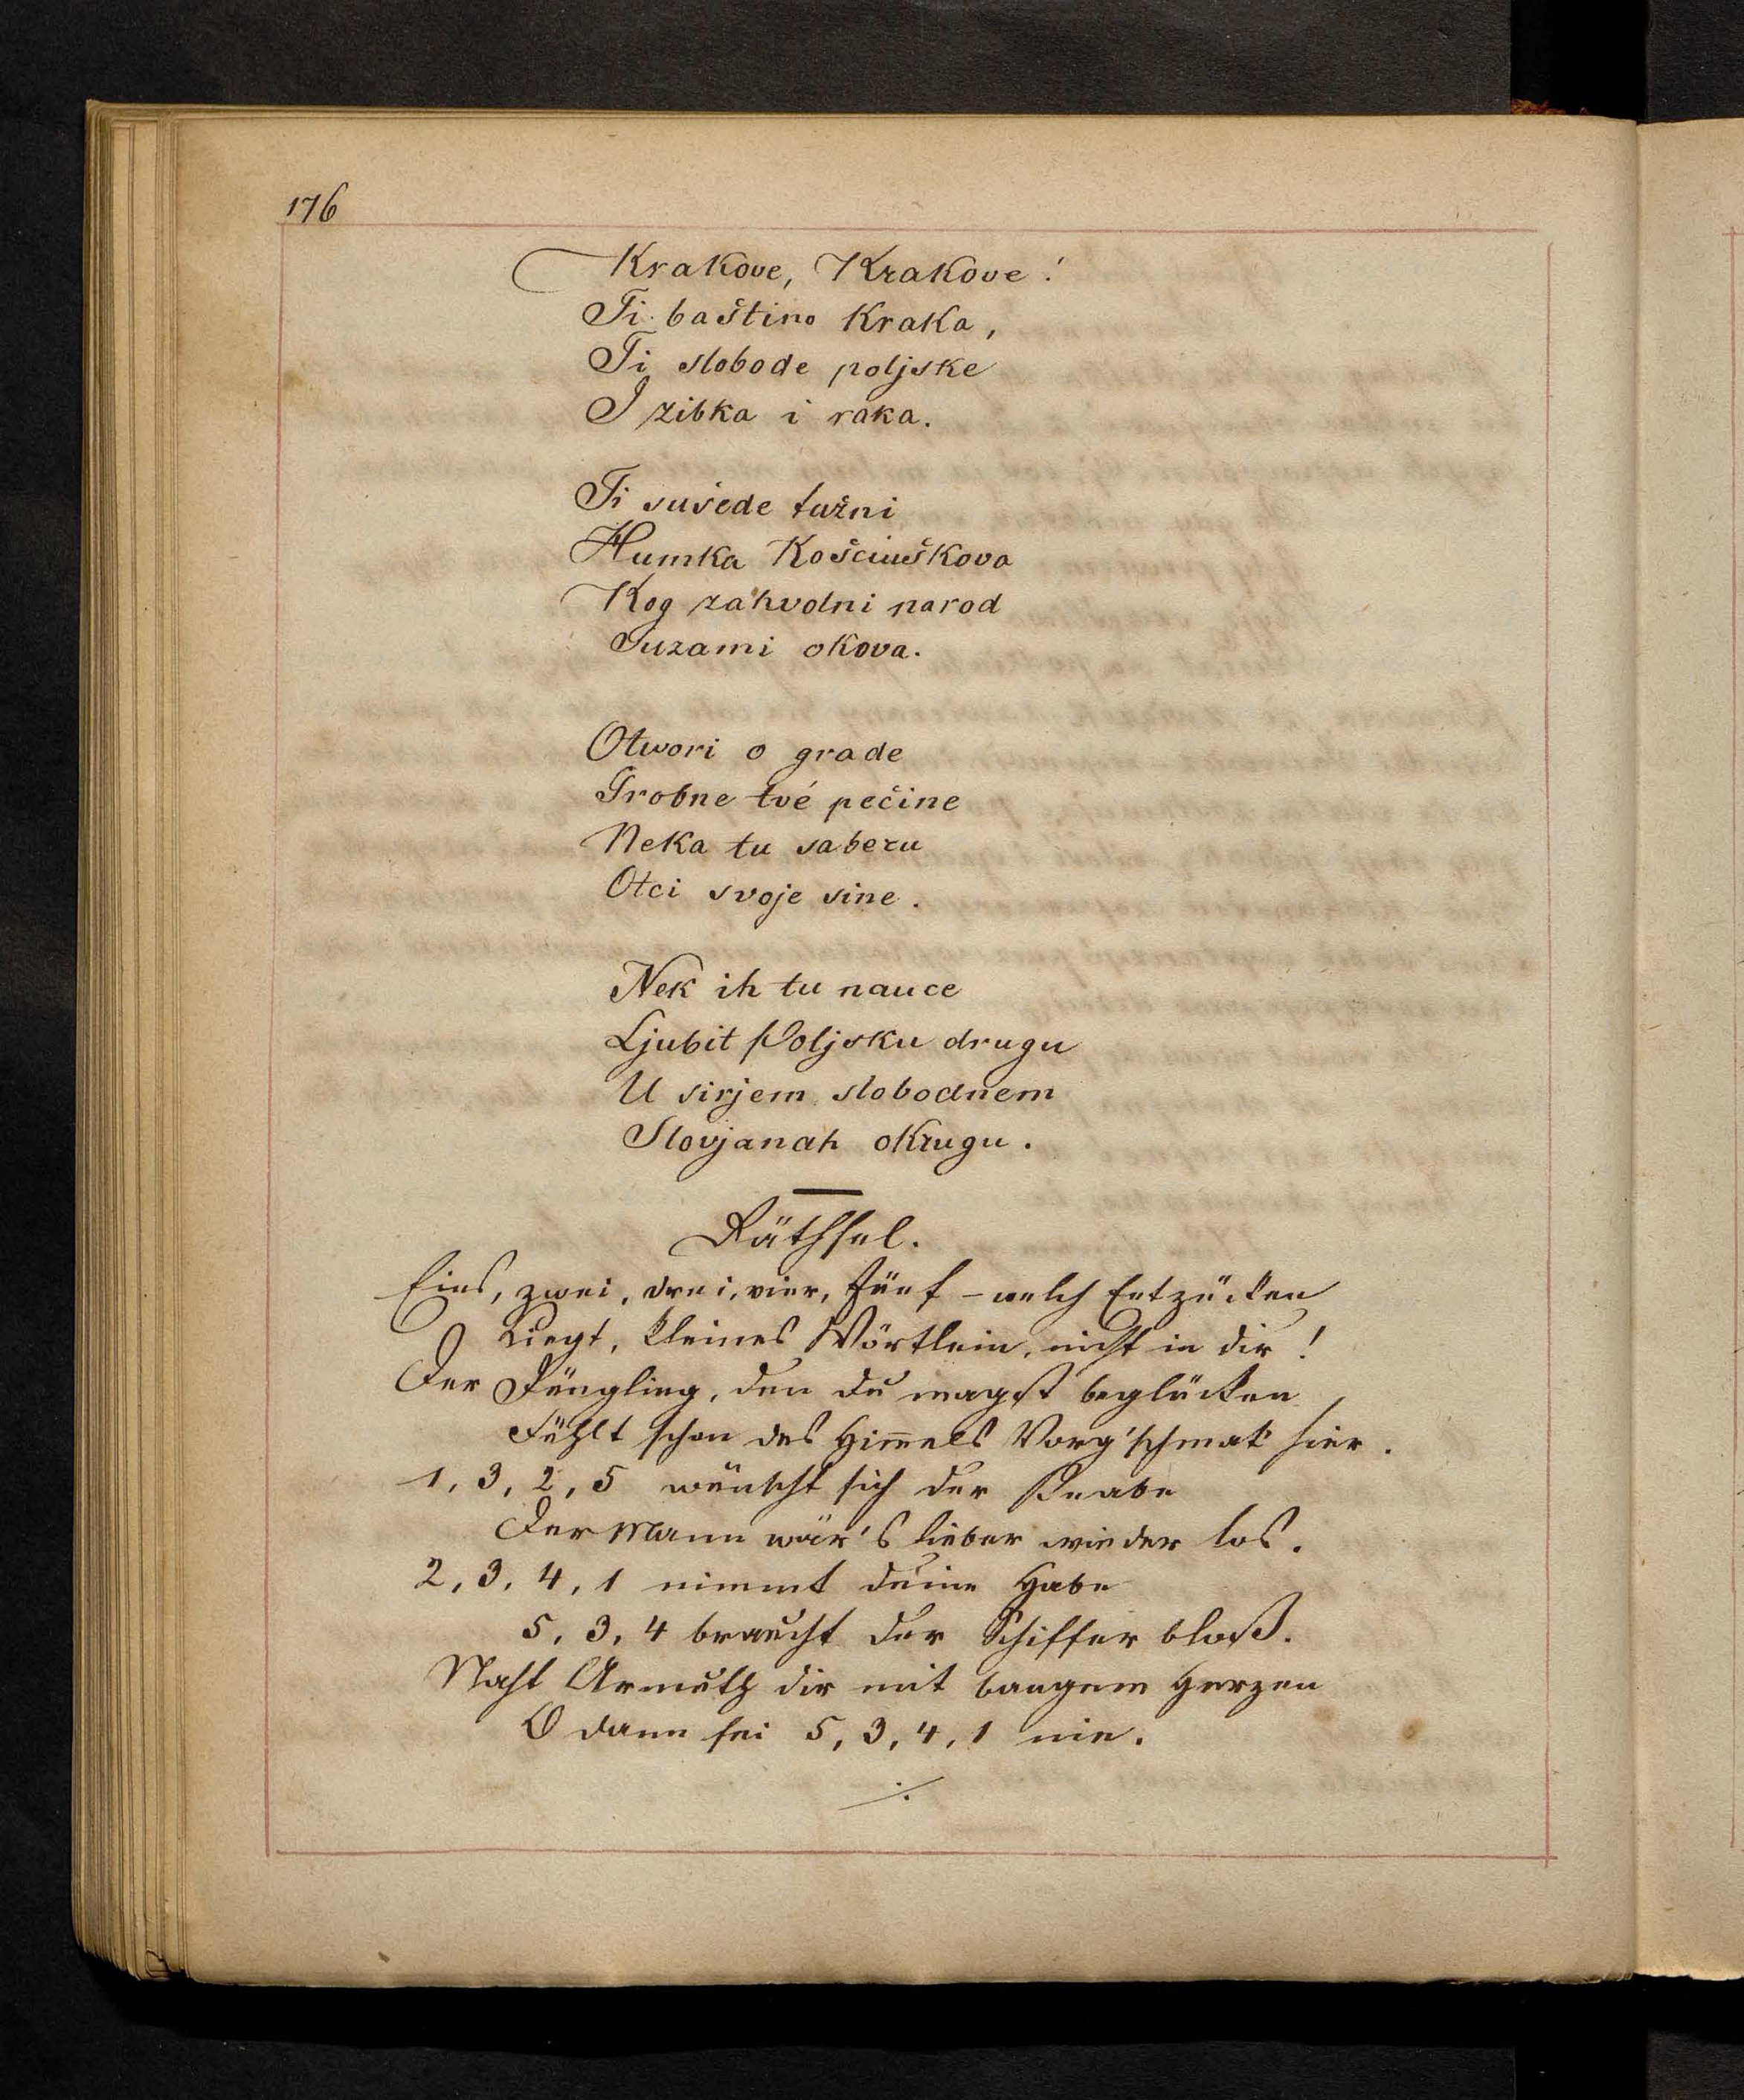 176
Krakove, Krakove!
Ti baštino Kraka,
Ti slobode poljske
I zibka i raka.
Ti sušede tužni
Humka Košciuškova
Kog zahvolni narod
Suzami okova.
Otwori o grade
Grobne tvé pečine
Neka tu saberu
Otci svoje sine.
Nek ih tu nauce
Ljubit Poljsku drugu
U sirjem slobodnem
Slovjanah okrugu.
Räthsel.
Eins, zwei, drei, vier, fünf – welch Entzücken
Liegt, kleines Wörtlein, nicht in dir!
Der Jüngling, den du magst beglücken
Fühlt schon des Him̅els Vorg'schmak hier.
1, 3, 2, 5 wünscht sich der Knabe
Der Mann wär's lieber wieder los.
2, 3, 4, 1 nimmt deine Habe
5, 3, 4 braucht der Schiffer bloß.
Naht Armuth dir mit bangem Herzen
O dann sei 5, 3, 4, 1 nie.
⁒